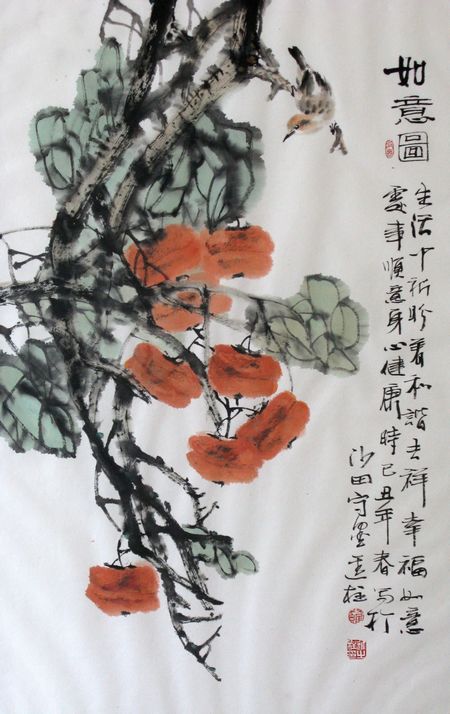 如意圖
生活中祈盼着和諧吉祥幸福如意
處事順意身心健康時己丑年春写於
沙田守墨